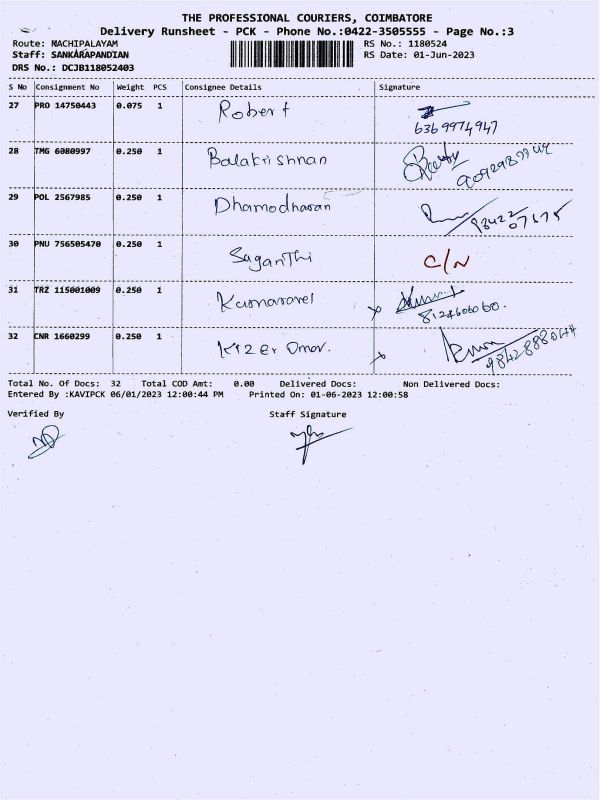 THE PROFESSIONAL COURIERS, COIMBATORE
Delivery Runsheet - PCK - Phone No.:0422-3505555 - Page No.:3
Route: MACHIPALAYAM RS No.: 1180524
Staff: SANKARAPANDIAN RS Date: 01-Jun-2023
DRS No.: DCJB118052403
S No Consignment No Weight PCS Consignee Details Signature
27 PRO 14750443 0.075 1 Robert
6369974947
28 TMG 6080997 0.250 1 Balakrishnan
29 POL 2567985 0.250 1 Dhamodharan
98422
07575
30 PNU 756505470 0.250 1 Saganthi C/N
31 TRZ 115001009 0.250 1 Kumaravel
8124606060.
32 CNR 1660299 0.250 1
Total No. Of Docs: 32 Total COD Amt: 0.00 Delivered Docs: Non Delivered Docs:
Entered By :KAVIPCK 06/01/2023 12:00:44 PM Printed On: 01-06-2023 12:00:58
Verified By Staff Signature